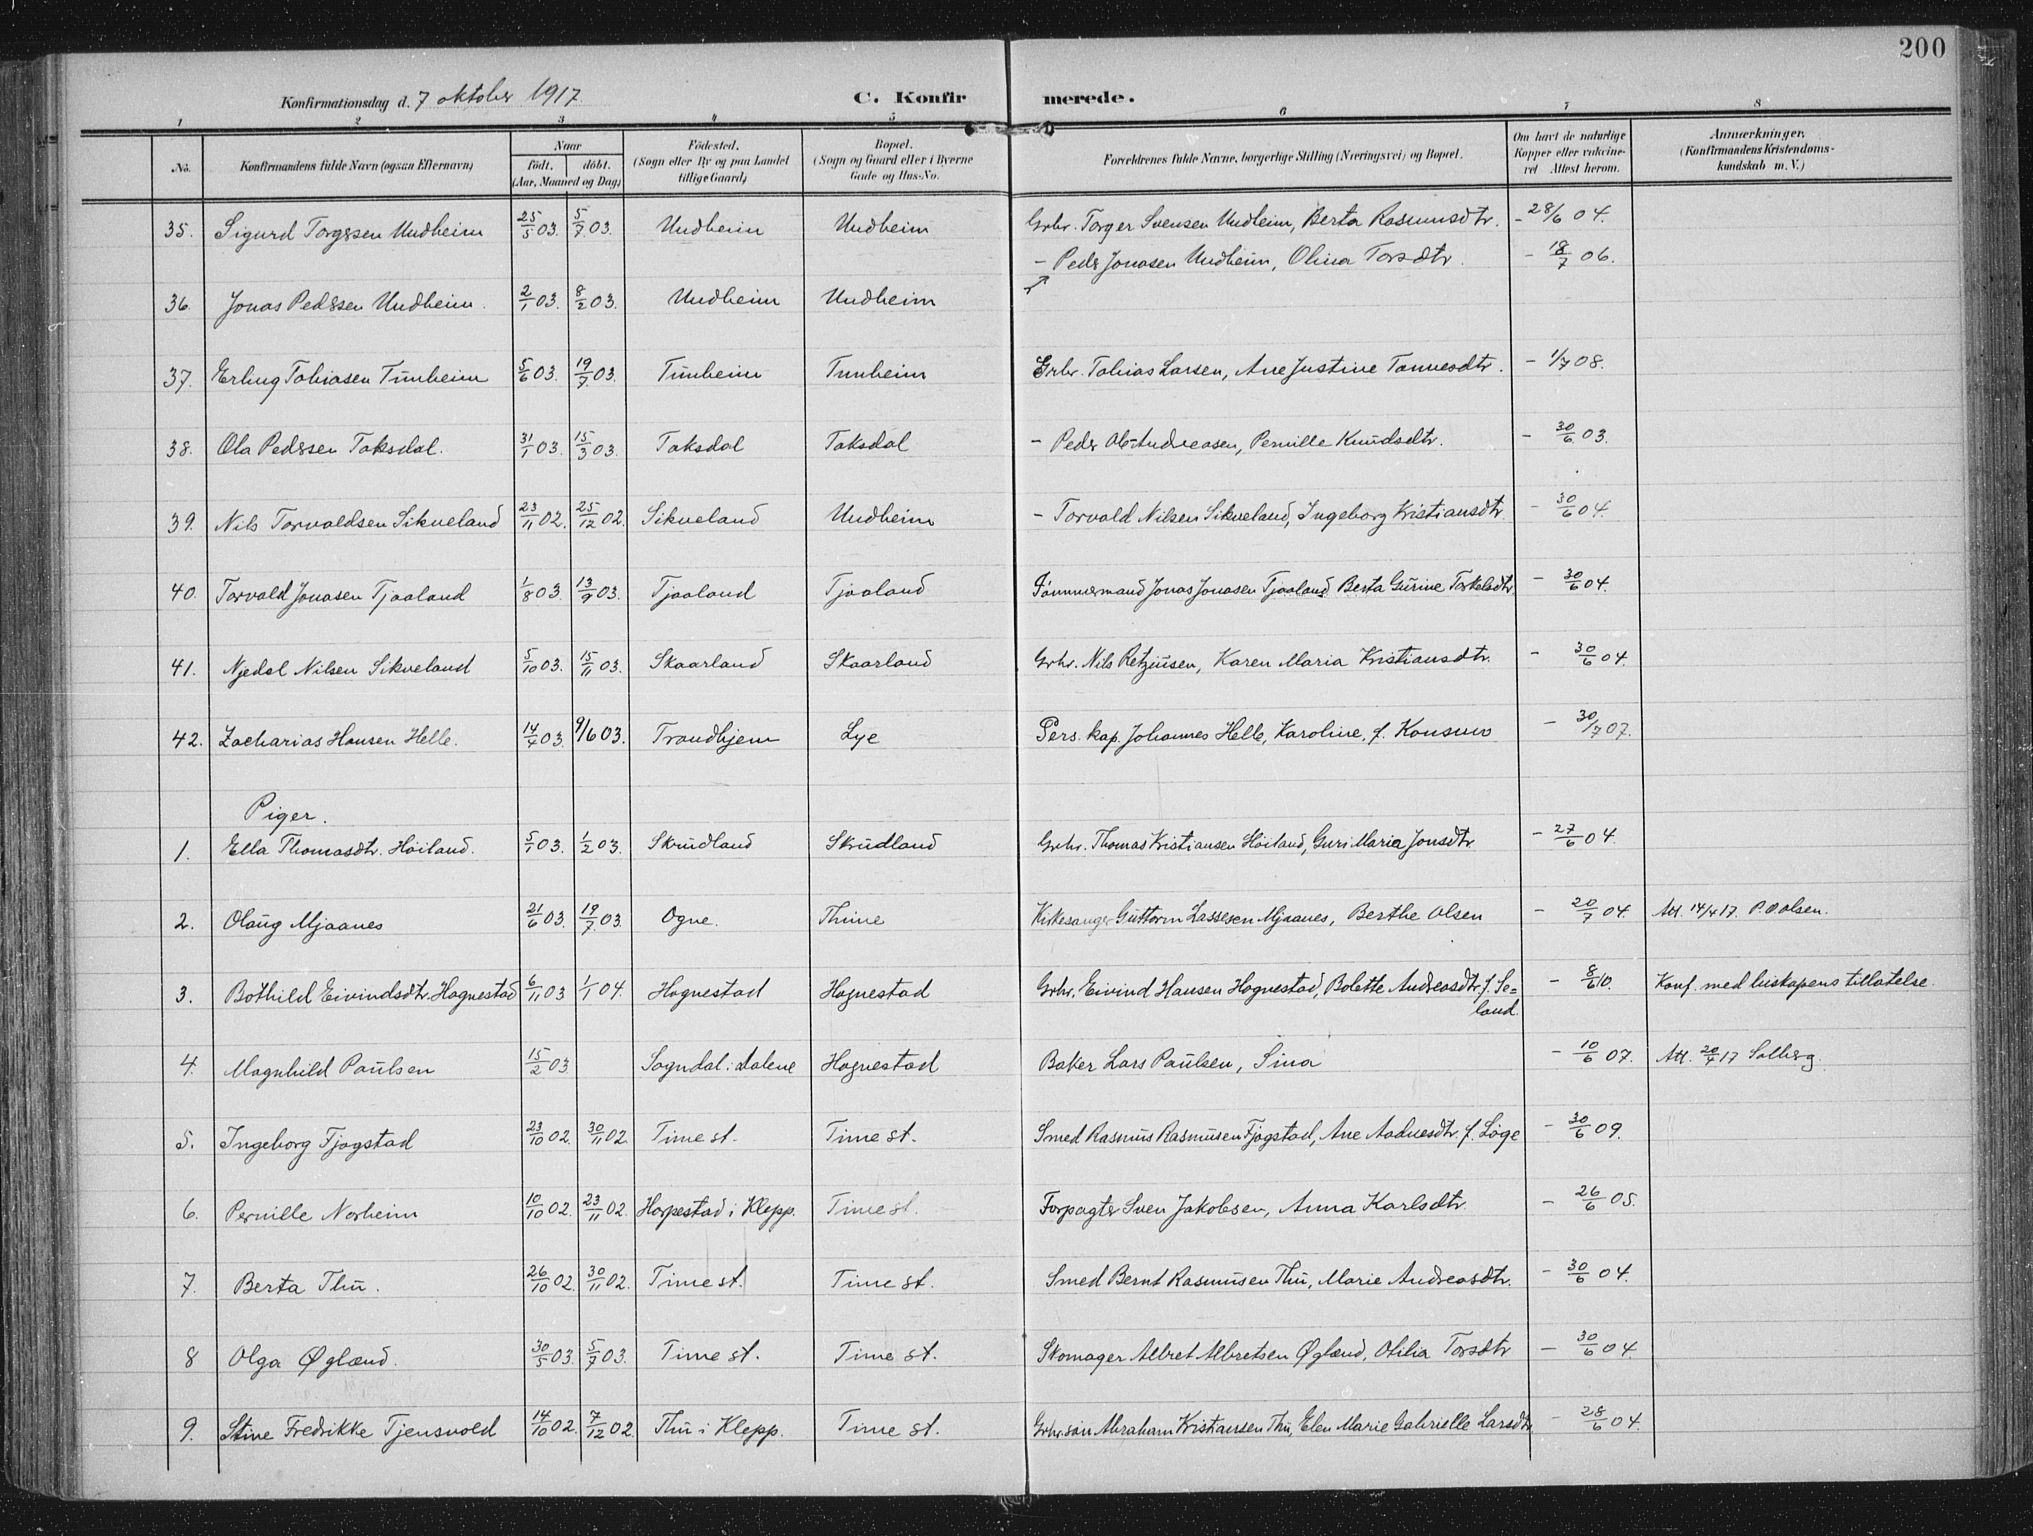 200
Konfirmationsdag d. 7 oktober 1917 C. Konfirmerede.
1 2 3 4 5 6 7 8
No. Konfirmandens fulde Navn (ogsaa Efternavn) Naar født. døbt. (Aar, Maaned og Dag) Fødested. (Sogn eller By og paa Landet tillige Gaard) Bopæl. (Sogn og Gaard eller i Byerne Gade og Hus-No. Forældrenes fulde Navne, borgerlige Stilling (Næringsvei) og Bopæl. Om havt de naturlige Kopper eller vakcineret Attest herom. Anmærkninger. (Konfirmandens Kristendomskundskab m. V.)
35. Sigurd Torgersen Undheim 25/5 03. 5/7 03. Undheim Undheim Grbr. Torger Svensen Undheim, Berta Rasmusdtr. - 28/6 04.
- Peder Jonasen Undheim, Olina Torsdtr. - 18/7 06.
36. Jonas Pedersen Undheim. 2/1 03. 8/2 03. Undheim Undheim
37. Erling Tobiasen Tunheim 5/6 03. 19/7 03. Tunheim Tunheim Grbr. Tobias Larsen, Ane Justine Tønnesdtr. - 1/7 08.
38. Ola Pedersen Taksdal. 31/1 03. 15/3 03. Taksdal Taksdal - Peder Andreasen, Pernille Knudsdtr. - 30/6 03.
39. Nils Torvaldsen Sikveland 23/11 02. 25/12 02. Sikveland Undheim - Torvald Nilsen Sikveland, Ingeborg Kristiansdtr. - 30/6 04.
40. Torvald Jonasen Tjaaland 1/8 03. 13/9 03. Tjaaland Tjaaland Tømmermand Jonas Jonasen Tjaaland Berta Gurine Torkelsdtr. - 30/6 04.
41. Njedal Nilsen Sikveland 5/10 03. 15/11 03. Skaarland Skaarland Grbr. Nils Retziusen, Karen Maria Kristiansdtr. - 30/6 04.
42. Zacharias Hansen Helle. 14/4 03. 9/6 03. Trondhjem Lye Pers. kap. Johannes Helle, Karoline, f. Konsmo - 30/7 07.
Piger.
1. Ella Thomasdtr. Höiland. 5/1 03. 1/2 03. Skrudland Skrudland Grbr. Thomas Kristiansen Höiland, Guri Maria Jonsdtr - 27/6 04.
2. Olaug Mjaanes 21/6 03. 19/7 03. Ogne. Thime Kirkesanger Guttorm Lassesen Mjaanes, Berthe Olsen - 20/7 04. Att. 14/4 17. P.O. Olsen.
3. Bothild Eivindsdtr. Hognestad 6/11 03 1/1 04. Hognestad Hognestad Grbr. Eivind Hansen Hognestad, Bolette Andreasdtr. f. Se=
land. - 8/6 10. Konf. med biskopens tillatelse.
4. Magnhild Paulsen 15/2 03 Sogndal i Dalene Hognestad Baker Lars Paulsen, Sina - 10/6 07. Att. 20/4 17 Solberg.
5. Ingeborg Fjogstad 23/10 02. 30/11 02. Time st. Time st. Smed Rasmus Rasmusen Fjogstad, Ane Aadnesdtr. f. Löge - 30/6 09.
6. Pernille Norheim 10/10 02. 23/11 02. Horpestad i Klepp. Time st. Forpagter Sven Jakobsen, Anna Karlsdtr - 26/6 05.
7. Berta Thu. 26/10 02. 30/11 02. Time st. Time st. Smed Bernt Rasmusen Thu, Marie Andreasdtr. - 30/6 04.
8 Olga Øglænd. 30/5 03. 5/7 03. Time st. Time st. Skomager Albret Albretsen Øglænd, Otilia Torsdtr - 30/6 04.
9. Stine Fredrikke Tjensvold 14/10 02. 7/12 02. Thu i Klepp. Time st. Grbr.søn Abraham Kristiansen Thu, Elen Marie Gabrielle Larsdtr - 28/6 04.